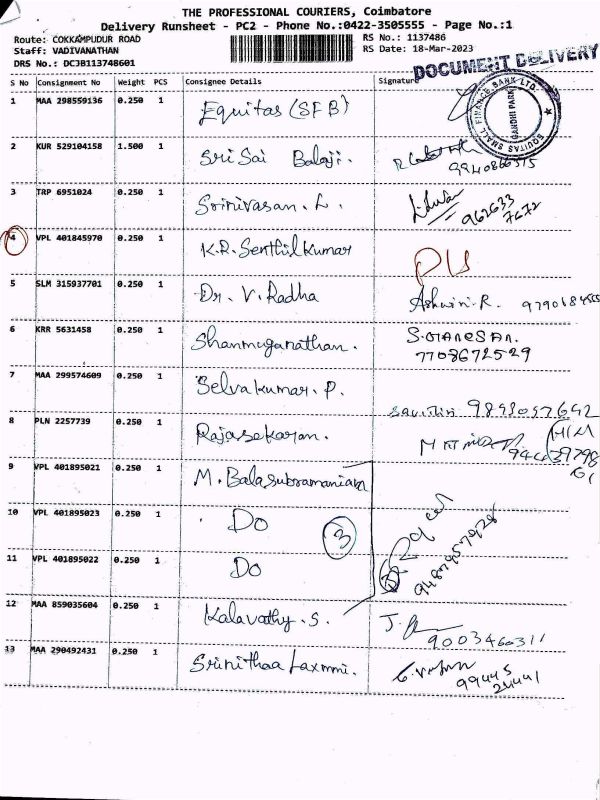 THE PROFESSIONAL COURIERS, Coimbatore
Delivery Runsheet - PC2 - Phone No.:0422-3505555 - Page No.:1
Route: COKKAMPUDUR ROAD RS No.: 1137486
Staff: VADIVANATHAN RS Date: 18-Mar-2023
DRS No.: DCJB113748601
DOCUMENT DELIVERY
S No Consignment No Weight PCS Consignee Details Signature
EQUITAS SMALL FINANCE BANK LTD.
GANDHI PARK
1 MAA 298559136 0.250 1 Equitas (SFB)
2 KUR 529104158 1.500 1 Sri Sai Balaji.
3 TRP 6951024 0.250 1 Srinivasan. L. 962633
7672
4 VPL 401845970 0.250 1 K.R. Senthil kumar
5 SLM 315937701 0.250 1 Dr. V. Radha Ashwini. R.
6 KRR 5631458 0.250 1 Shanmuganathan. S. GANESAN.
7708672529
7 MAA 299574609 0.250 1 Selvakumar. P.
8 PLN 2257739 0.250 1 Rajasekaran.
9 VPL 401895021 0.250 1 M. Balasubramaniam
10 VPL 401895023 0.250 1 Do 3
11 VPL 401895022 0.250 1 Do
12 MAA 859035604 0.250 1 Kalavathy. S. 9003460311
13 MAA 290492431 0.250 1 Srinithaa Laxmmi. 99445
24441